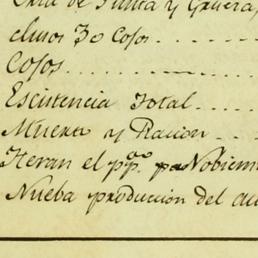 de Junta y
clusos 30 Cosos
Cosos
Escistencia Total
Muerto y Racion
Heran el pp.º Nobiem
Nueba produccion del au